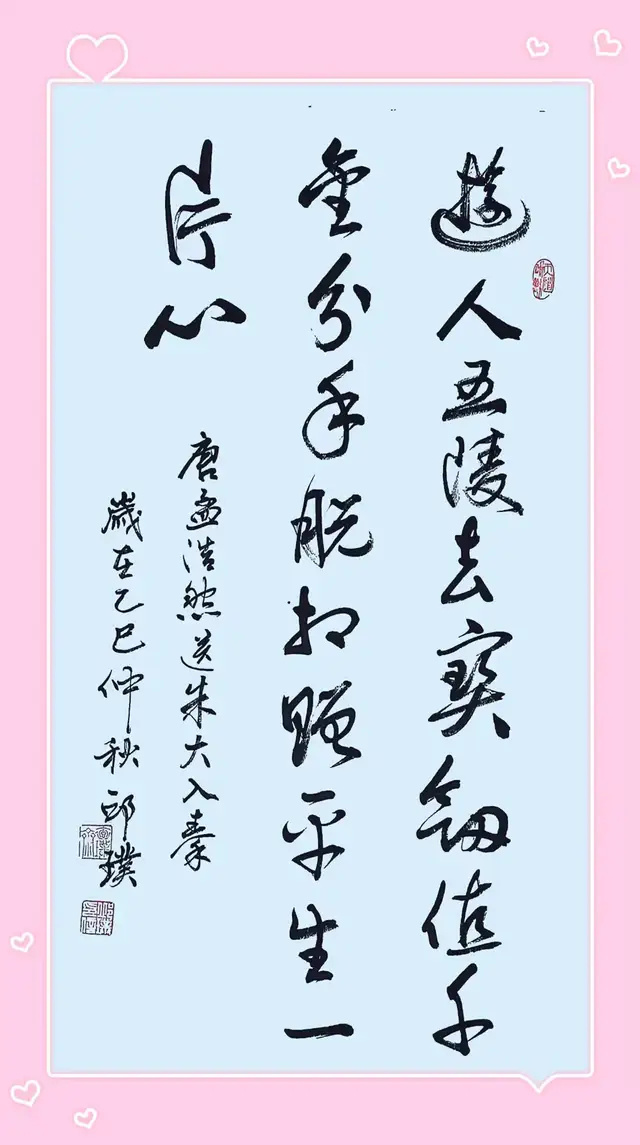 遊人五陵去寶劔值千
金分手脱相贈平生一
片心
唐孟浩然送朱大入秦
歲在乙巳仲秋邱璞